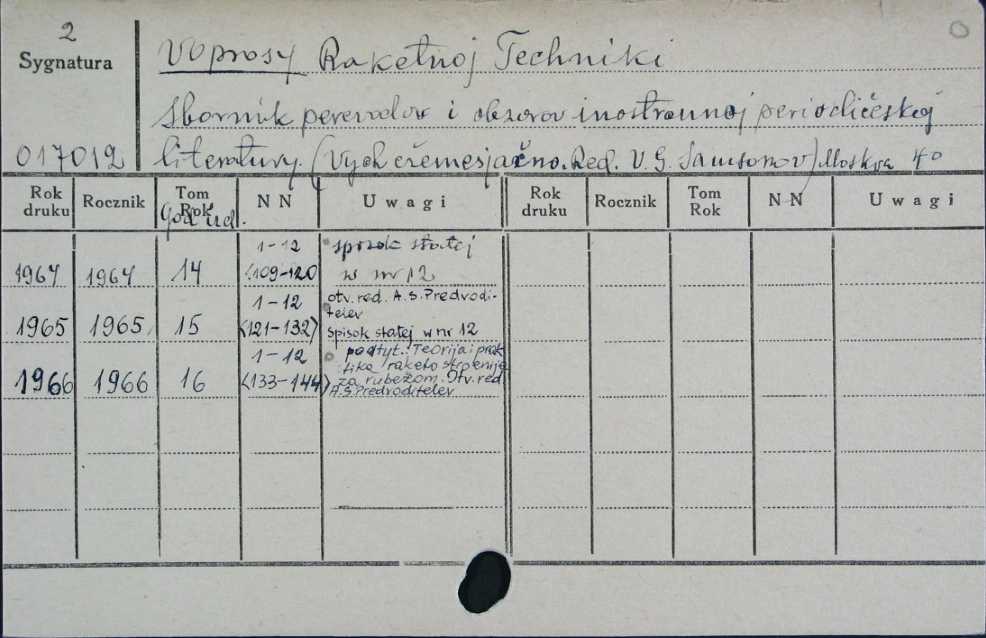 2
Sygnatura
Voprosy Raketnoj Techniki
Sbornik perevodov i obzorov inostrannoj periodičeskoj
017012 literatury. (Vych. ežemesjačno. Red. V. G. Samsonov) Moskva 4°
Rok druku Rocznik Tom Rok NN Uwagi Rok druku Rocznik Tom Rok NN Uwagi
God izd.
1-12 spisok statej
1964 1964 14 (109-120 w nr 12
1-12 otv. red. A.S. Predvodi-
telev
1965 1965 15 (121-132) spisok statej w nr 12
1-12 podtyt.: Teorija i prak
tika raketostroenija
1966 1966 16 (133-144) za rubežom. Otv. red
A.S. Predvoditelev